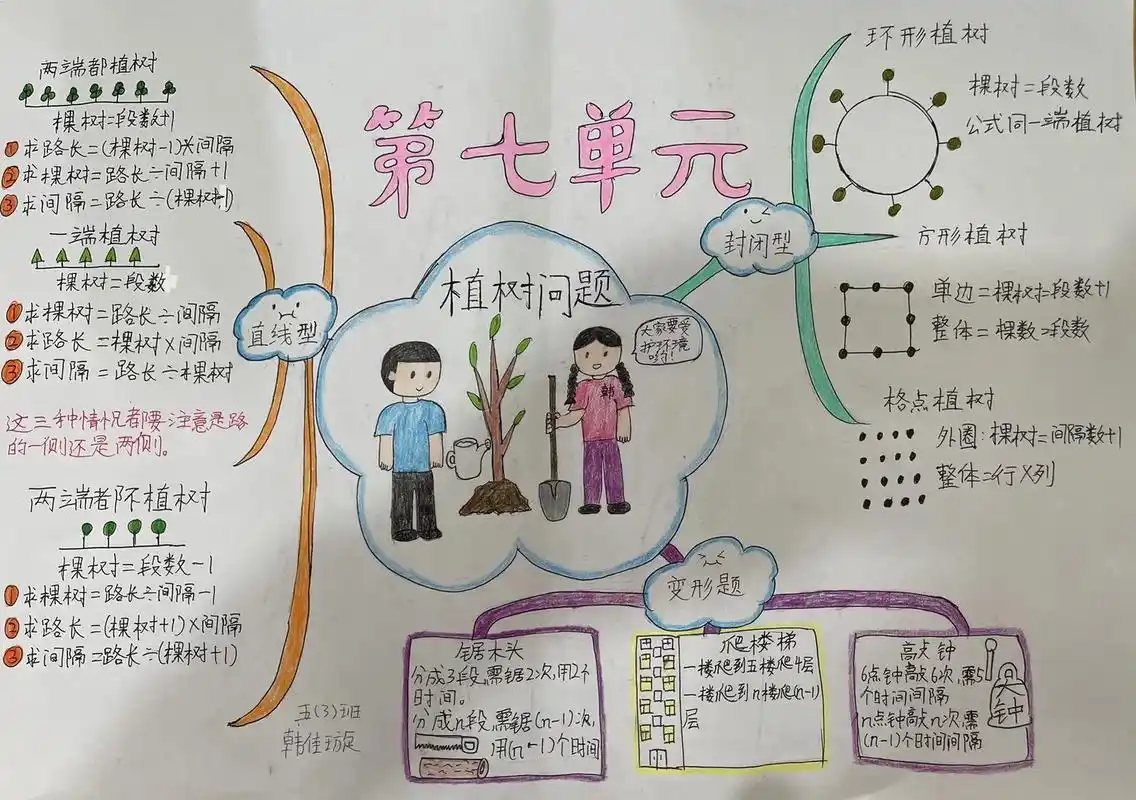 第七单元
植树问题
大家要爱
护环境
哟!
韩
直线型
两端都植树
棵树=段数+1
①求路长=(棵树-1)×间隔
②求棵树=路长÷间隔+1
③求间隔=路长÷(棵树-1)
一端植树
棵树=段数
①求棵树=路长÷间隔
②求路长=棵树×间隔
③求间隔=路长÷棵树
这三种情况都要注意是路
的一侧还是两侧。
两端都不植树
棵树=段数-1
①求棵树=路长÷间隔-1
②求路长=(棵树+1)×间隔
③求间隔=路长÷(棵树+1)
五(3)班
韩佳璇
封闭型
环形植树
棵树=段数
公式同一端植树
方形植树
单边=棵树=段数+1
整体=棵数=段数
格点植树
外圈:棵树=间隔数+1
整体=行×列
变形题
锯木头
分成3段,需锯2次,用2个
时间。
分成n段,需锯(n-1)次,
用(n-1)个时间
爬楼梯
一楼爬到五楼爬4层
一楼爬到n楼爬(n-1)
层
敲钟
6点钟敲6次,需5
个时间间隔
n点钟敲n次,需
(n-1)个时间间隔
钟